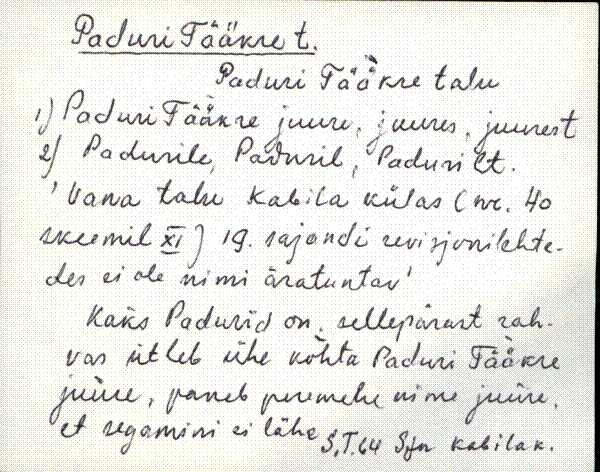 Paduri Tääkre t.
Paduri Tääkre talu
1) Paduri Tääkre juure, juures, juurest
2) Padurile, Paduril, Padurilt.
'Vana talu Kabila külas (nr. 40
skeemil XI) 19. sajandi revisjonilehte-
des ei ole nimi äratuntav'
Kaks Padurid on, sellepärast rah-
vas ütleb ühe kohta Paduri Tääkre
juure, paneb peremehe nime juure,
et segamini ei lähe S,T.64 Sjn Kabilak.